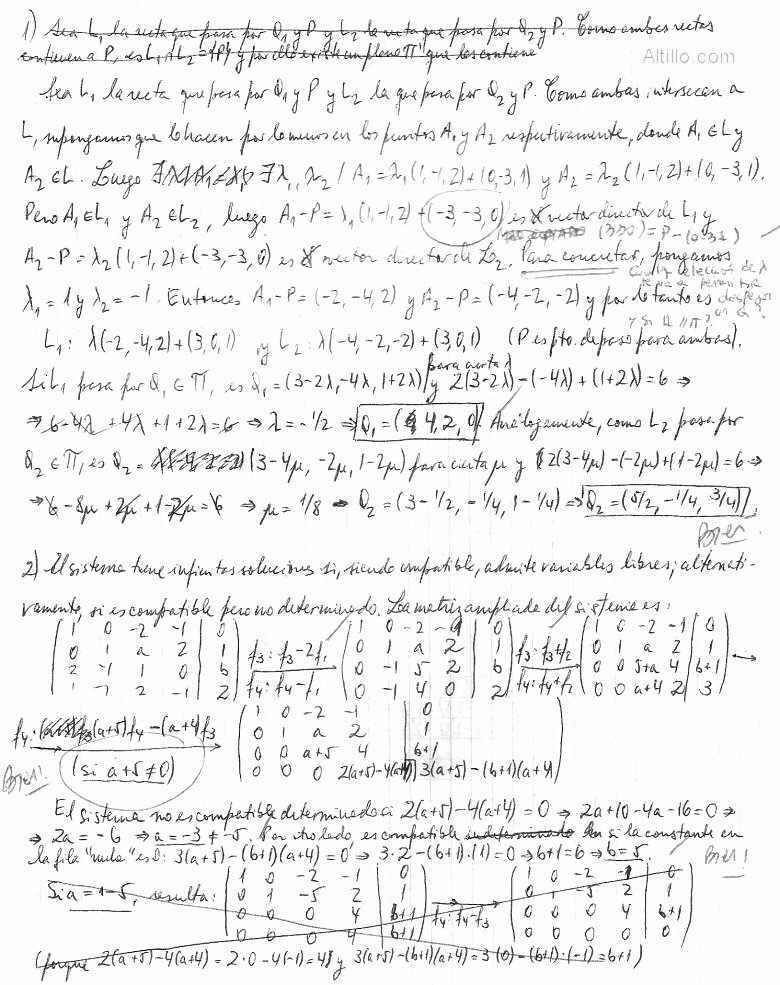 1) Sea L₁ la recta que pasa por Q₁ y P y L₂ la recta que pasa por Q₂ y P. Como ambas rectas
Altillo.com
contienen a P, es L₁∩L₂={P} y por ello existe un plano Π que las contiene
Sea L₁ la recta que pasa por Q₁ y P y L₂ la que pasa por Q₂ y P. Como ambas intersecan a
L, supongamos que lo hacen por lo menos en los puntos A₁ y A₂ respectivamente, donde A₁∈L y
A₂∈L. Luego ∃ λ₁, λ₂ / A₁=λ₁(1,-1,2)+(0,-3,1) y A₂=λ₂(1,-1,2)+(0,-3,1).
Pero A₁∈L₁ y A₂∈L₂, luego A₁-P=λ₁(1,-1,2)+(-3,-3,0) es vector director de L₁ y
(330)=P-(0-31)
A₂-P=λ₂(1,-1,2)+(-3,-3,0) es vector director de L₂. Para concretar, pongamos
λ₁=1 y λ₂=-1. Entonces A₁-P=(-2,-4,2) y A₂-P=(-4,-2,-2) y por lo tanto es
L₁: λ(-2,-4,2)+(3,0,1) y L₂: λ(-4,-2,-2)+(3,0,1) (P es pto. de paso para ambas).
para cierta λ
Si L₁ pasa por Q₁∈Π, es Q₁=(3-2λ,-4λ,1+2λ) y 2(3-2λ)-(-4λ)+(1+2λ)=6 ⇒
⇒ 6-4λ+4λ+1+2λ=6 ⇒ λ=-1/2 ⇒ Q₁=(4,2,0). Análogamente, como L₂ pasa por
Q₂∈Π, es Q₂=(3-4μ,-2μ,1-2μ) para cierta μ y 2(3-4μ)-(-2μ)+(1-2μ)=6 ⇒
⇒ 6-8μ+2μ+1-2μ=6 ⇒ μ=1/8 ⇒ Q₂=(3-1/2,-1/4,1-1/4) ⇒ Q₂=(5/2,-1/4,3/4).
2) El sistema tiene infinitas soluciones si, siendo compatible, admite variables libres; alternati-
vamente, si es compatible pero no determinado. La matriz ampliada del sistema es:
1 0 -2 -1 | 0 1 0 -2 -1 | 0 1 0 -2 -1 | 0
0 1 a 2 | 1 f₃:f₃-2f₁ 0 1 a 2 | 1 f₃:f₃+f₂ 0 1 a 2 | 1
2 -1 1 0 | b f₄:f₄-f₁ 0 -1 5 2 | b f₄:f₄+f₂ 0 0 5+a 4 | b+1
1 -1 2 -1 | 2 0 -1 4 0 | 2 0 0 a+4 2 | 3
f₄:(a+5)f₄-(a+4)f₃ 1 0 -2 -1 | 0
0 1 a 2 | 1
(si a+5≠0) 0 0 a+5 4 | b+1
0 0 0 2(a+5)-4(a+4) | 3(a+5)-(b+1)(a+4)
El sistema no es compatible determinado si 2(a+5)-4(a+4)=0 ⇒ 2a+10-4a-16=0 ⇒
⇒ 2a=-6 ⇒ a=-3≠-5. Por otro lado es compatible indeterminado si la constante en
la fila "nula" es 0: 3(a+5)-(b+1)(a+4)=0 ⇒ 3·2-(b+1)(1)=0 ⇒ b+1=6 ⇒ b=5.
Si a=-5, resulta: 1 0 -2 -1 | 0 1 0 -2 -1 | 0
0 1 -5 2 | 1 0 1 -5 2 | 1
0 0 0 4 | b+1 f₄:f₄-f₃ 0 0 0 4 | b+1
0 0 0 4 | b+1 0 0 0 0 | 0
(porque 2(a+5)-4(a+4)=2·0-4(-1)=4 y 3(a+5)-(b+1)(a+4)=3(0)-(b+1)·(-1)=b+1)